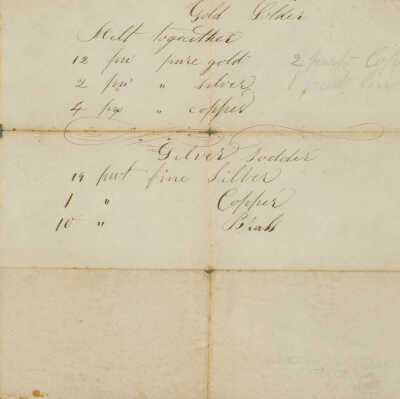 Gold Solder
Melt togeather
12 pw pure gold
2 pw " silver
4 pw " copper
2 parts Cop
1 part
Silver Sodder
19 pwt fine Silver
1 " Copper
10 " Brass